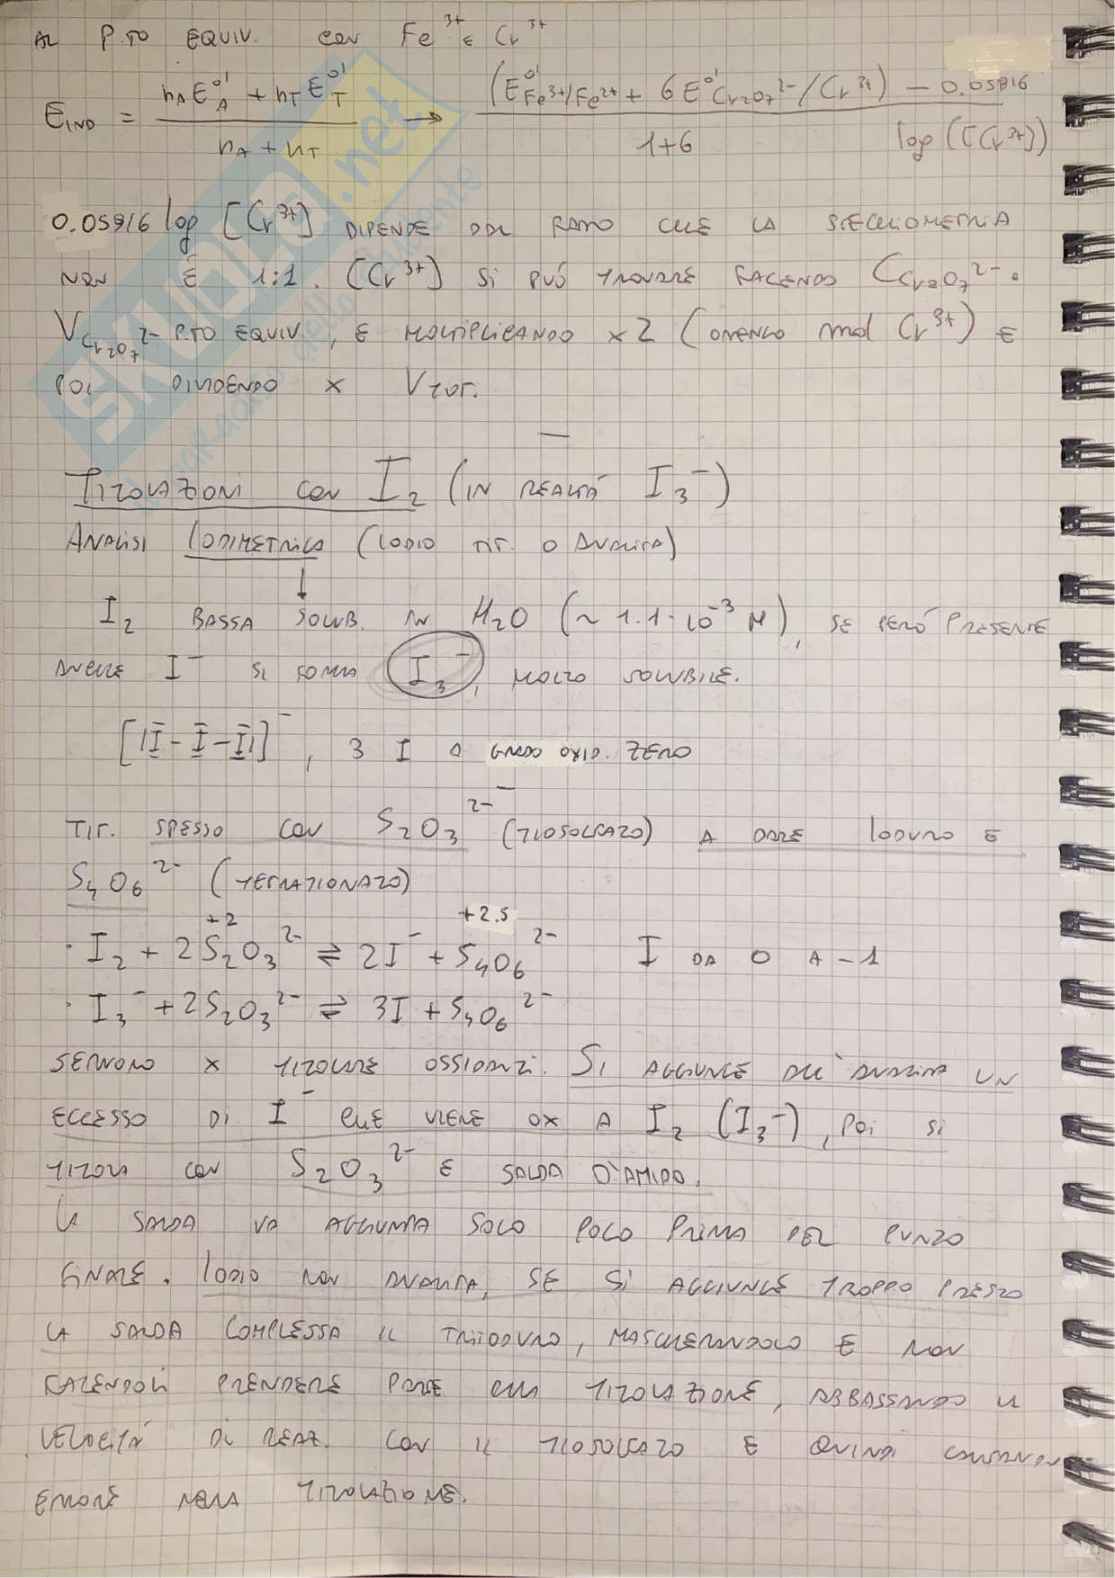 AL P.TO EQUIV. CON Fe³⁺ E Cr³⁺
E_IND = (n_A E°'_A + n_T E°'_T) / (n_A + n_T) → (E°'_Fe³⁺/Fe²⁺ + 6E°'_Cr₂O₇²⁻/Cr³⁺) − 0.05916 / 1+6 log([Cr³⁺])
0.05916 log [Cr³⁺] DIPENDE DAL FATTO CHE LA STECHIOMETRIA
NON È 1:1. [Cr³⁺] SI PUÓ TROVARE FACENDO C_Cr₂O₇²⁻ ·
V_Cr₂O₇²⁻ P.TO EQUIV., E MOLTIPLICANDO x2 (OTTENGO mol Cr³⁺) E
POI DIVIDENDO x VTOT.
TITOLAZIONI CON I₂ (IN REALTÁ I₃⁻)
ANALISI IODIMETRICA (IODIO TIT. O ANALITA)
↓
I₂ BASSA SOLUB. IN H₂O (~ 1.1·10⁻³ M), SE PERÓ PRESENTE
ANCHE I⁻ SI FORMA I₃⁻, MOLTO SOLUBILE.
[|I-I-I|]⁻, 3 I A GRADO OXID. ZERO
TIT. SPESSO CON S₂O₃²⁻ (TIOSOLFATO) A DARE IODURO E
S₄O₆²⁻ (TETRATIONATO)
+2 +2.5
· I₂ + 2S₂O₃²⁻ ⇌ 2I⁻ + S₄O₆²⁻ I DA 0 A -1
· I₃⁻ + 2S₂O₃²⁻ ⇌ 3I + S₄O₆²⁻
SERVONO x TITOLARE OSSIDANTI. SI AGGIUNGE ALL'ANALITA UN
ECCESSO DI I⁻ CHE VIENE OX A I₂ (I₃⁻), POI SI
TITOLA CON S₂O₃²⁻ E SALDA D'AMIDO.
LA SALDA VA AGGIUNTA SOLO POCO PRIMA DEL PUNTO
FINALE. IODIO NON ANALITA, SE SI AGGIUNGE TROPPO PRESTO
LA SALDA COMPLESSA IL TRIIODURO, MASCHERANDOLO E NON
FACENDOLI PRENDERE PARTE ALLA TITOLAZIONE, ABBASSANDO LA
VELOCITÁ DI REAZ. CON IL TIOSOLFATO E QUINDI CAUSANDO
ERRORE NELLA TITOLAZIONE.
SKUOLA.net